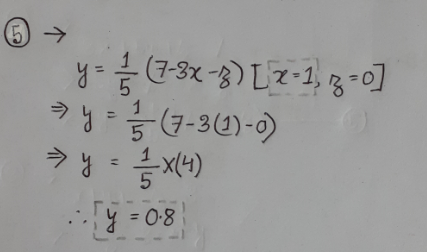 ⑤ →
y = 1/5 (7-3x-z) [x=1, z=0]
⇒ y = 1/5 (7-3(1)-0)
⇒ y = 1/5 x(4)
∴ y = 0.8